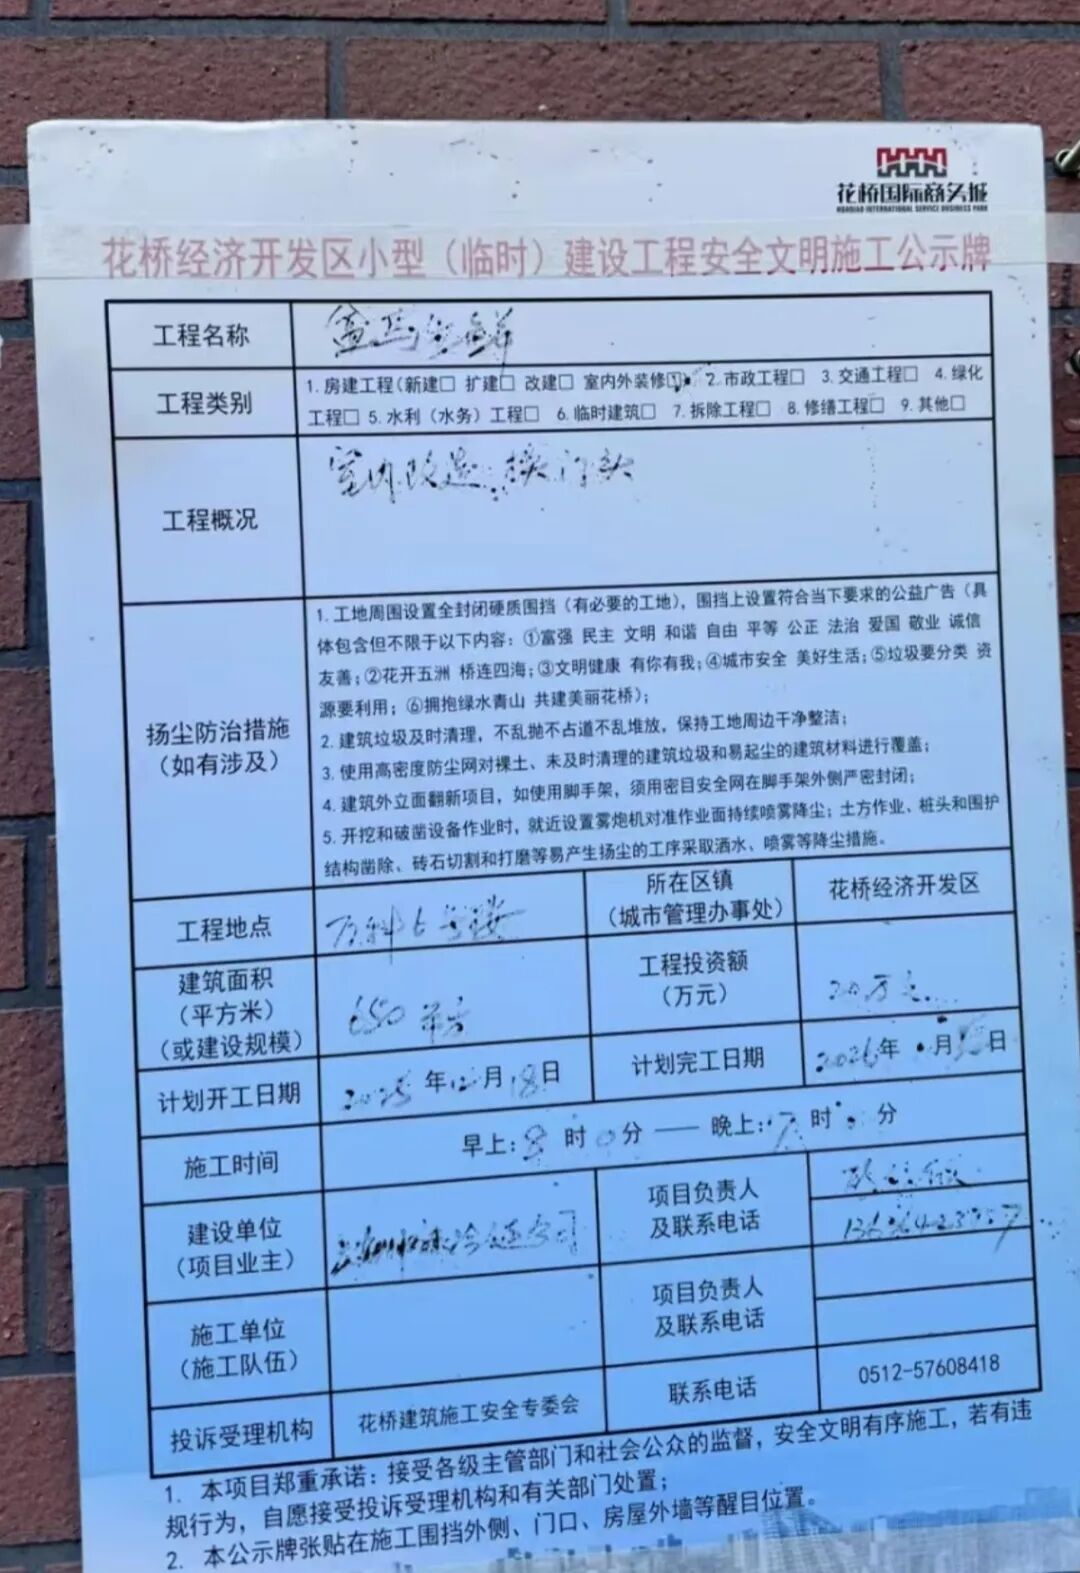 花桥国际商务城
HUAQIAO INTERNATIONAL SERVICE BUSINESS PARK
花桥经济开发区小型（临时）建设工程安全文明施工公示牌
工程名称 盒马生鲜
工程类别 1. 房建工程（新建□ 扩建□ 改建□ 室内外装修☑ 2. 市政工程□ 3. 交通工程□ 4. 绿化
工程□ 5. 水利（水务）工程□ 6. 临时建筑□ 7. 拆除工程□ 8. 修缮工程□ 9. 其他□
工程概况 室内改造 换门头
扬尘防治措施
（如有涉及）
1. 工地周围设置全封闭硬质围挡（有必要的工地），围挡上设置符合当下要求的公益广告（具
体包含但不限于以下内容：①富强 民主 文明 和谐 自由 平等 公正 法治 爱国 敬业 诚信
友善；②花开五洲 桥连四海；③文明健康 有你有我；④城市安全 美好生活；⑤垃圾要分类 资
源要利用；⑥拥抱绿水青山 共建美丽花桥）；
2. 建筑垃圾及时清理，不乱抛不占道不乱堆放，保持工地周边干净整洁；
3. 使用高密度防尘网对裸土、未及时清理的建筑垃圾和易起尘的建筑材料进行覆盖；
4. 建筑外立面翻新项目，如使用脚手架，须用密目安全网在脚手架外侧严密封闭；
5. 开挖和破凿设备作业时，就近设置雾炮机对准作业面持续喷雾降尘；土方作业、桩头和围护
结构凿除、砖石切割和打磨等易产生扬尘的工序采取洒水、喷雾等降尘措施。
工程地点 万科6号楼
所在区镇
（城市管理办事处）
花桥经济开发区
建筑面积
（平方米）
（或建设规模）
650平方
工程投资额
（万元）
20万元
计划开工日期 2025年12月18日
计划完工日期 2026年 月 日
施工时间 早上：8时0分 —— 晚上： 时 分
建设单位
（项目业主）
冷链公司
项目负责人
及联系电话
施工单位
（施工队伍）
项目负责人
及联系电话
投诉受理机构 花桥建筑施工安全专委会
联系电话 0512-57608418
1. 本项目郑重承诺：接受各级主管部门和社会公众的监督，安全文明有序施工，若有违
规行为，自愿接受投诉受理机构和有关部门处置；
2. 本公示牌张贴在施工围挡外侧、门口、房屋外墙等醒目位置。